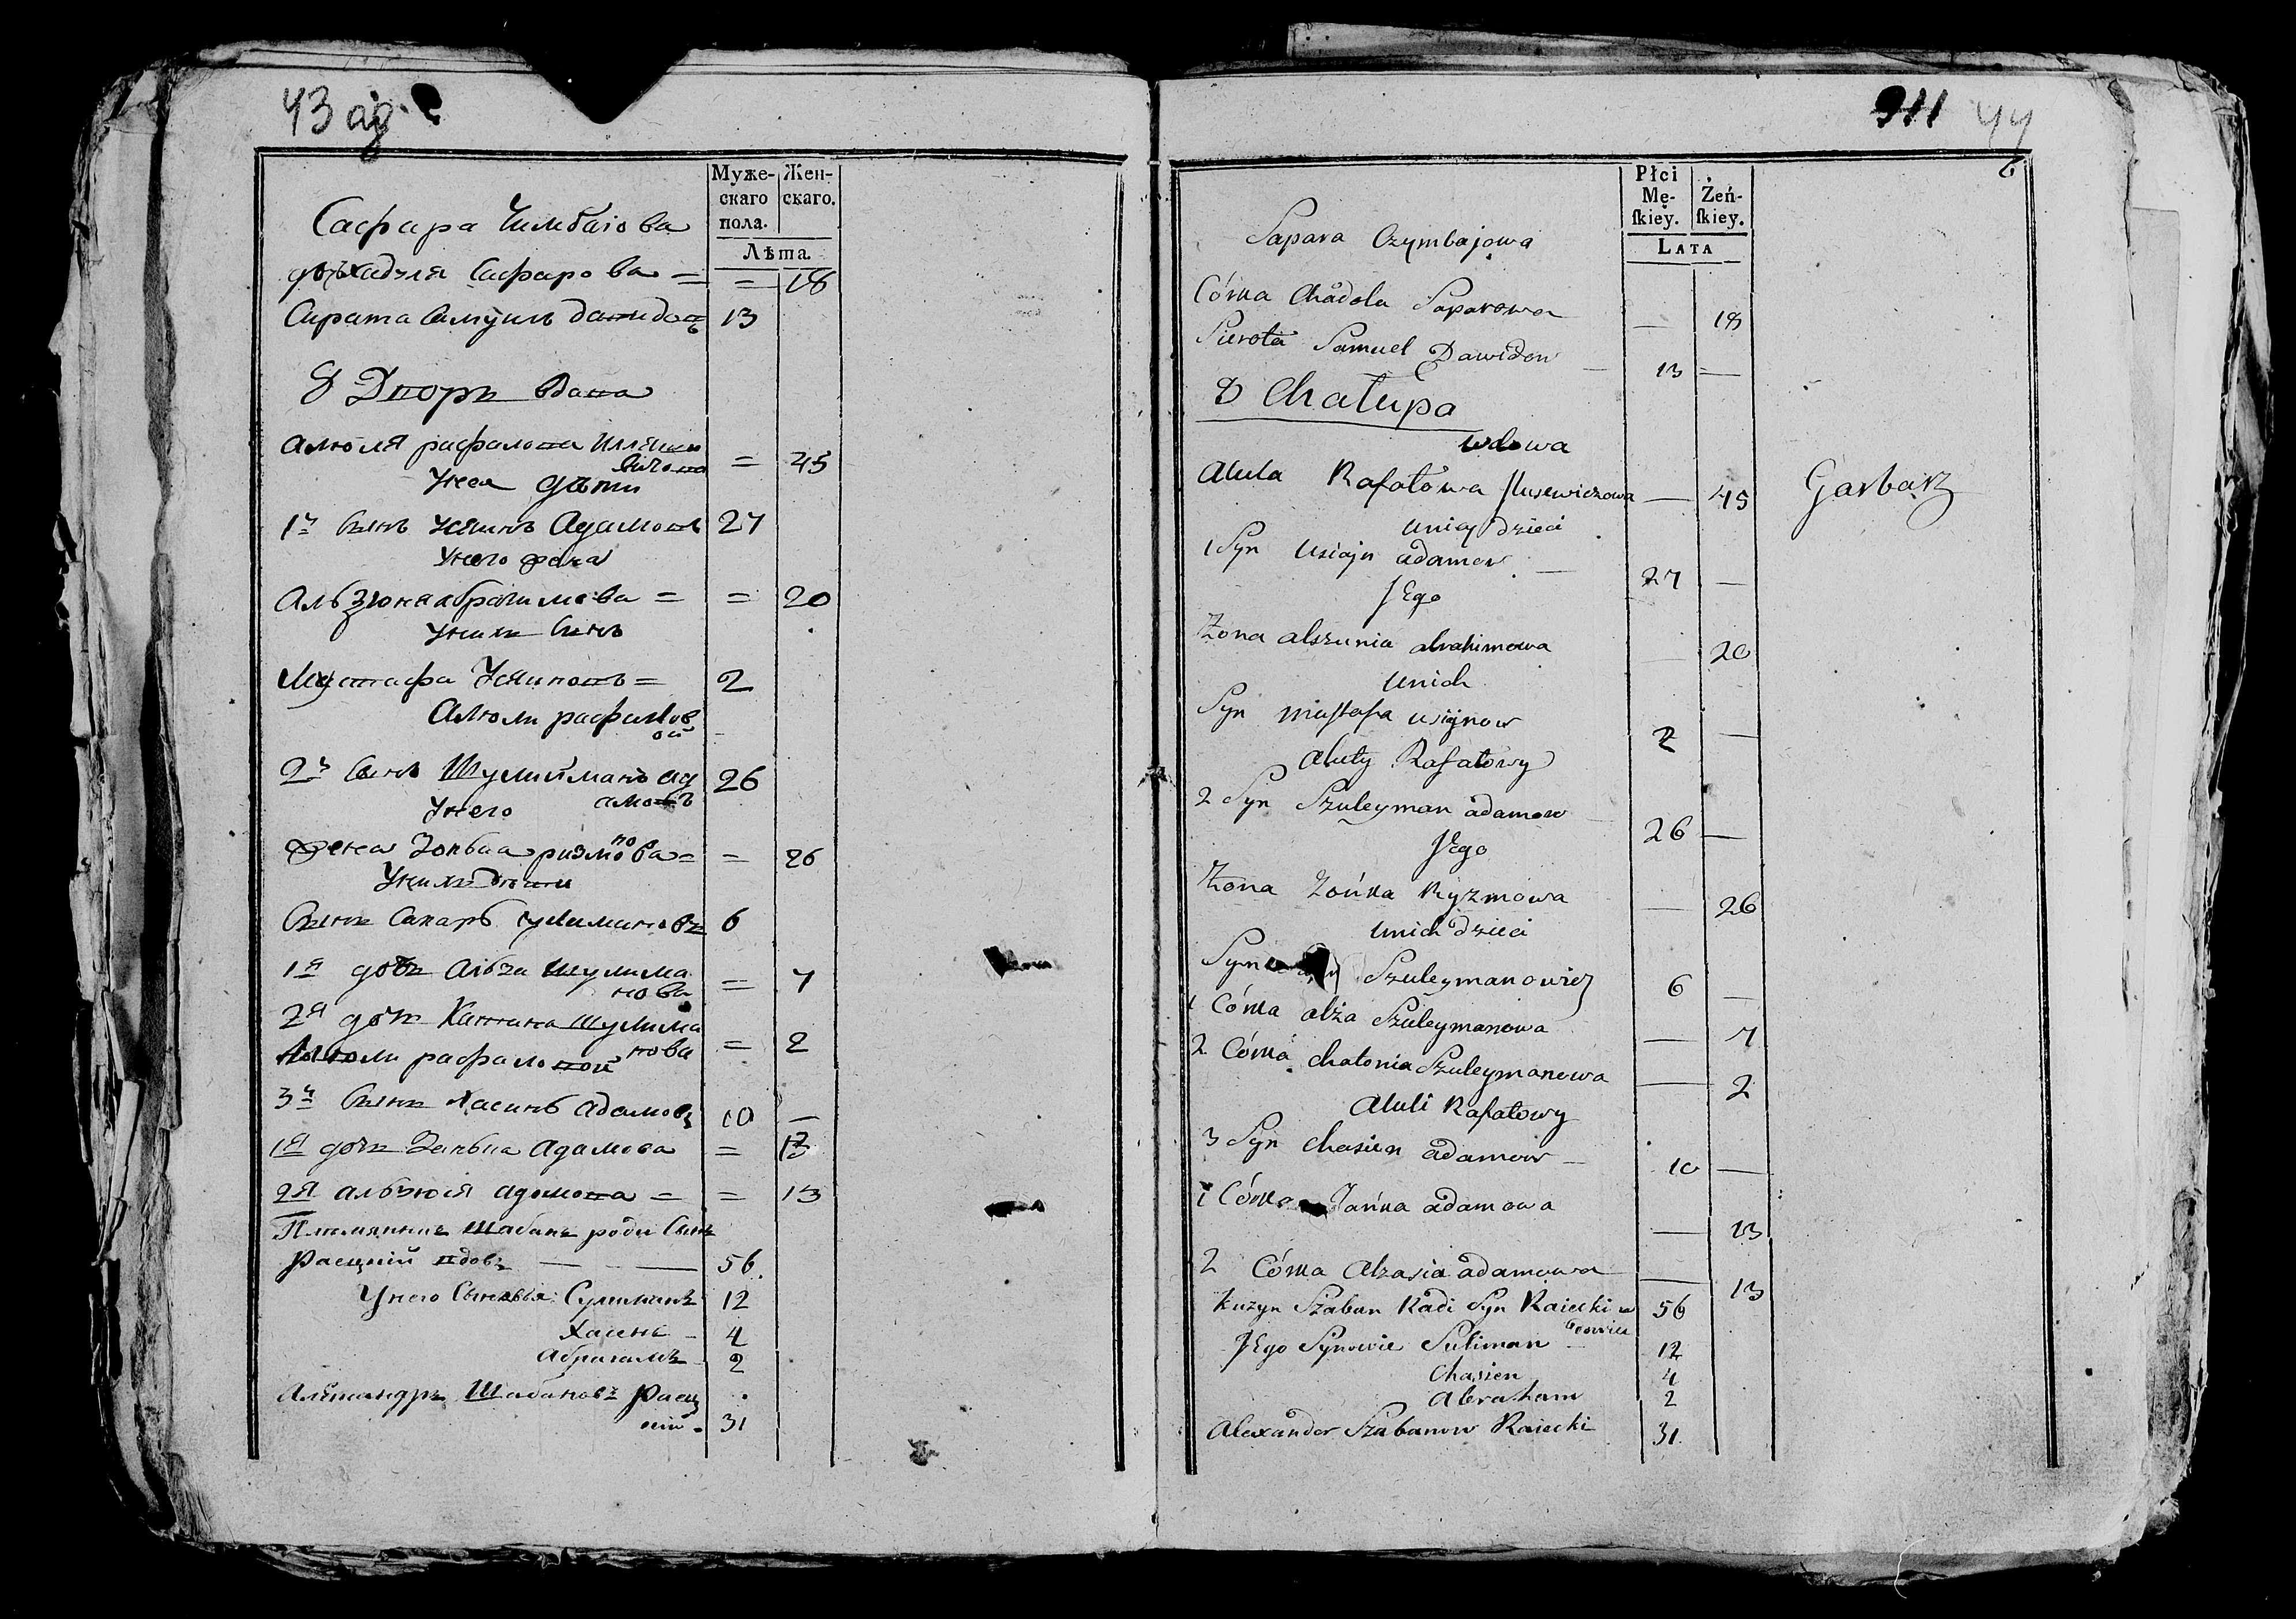 43 ад
Муже-
скаго
пола.
Жен-
скаго.
Лѣта.
Сафара Чимбаіова
дочь хадзля Сафарова = = 18
Сирота Самуилъ давидовъ 13
8 Дворъ вдова
алюля рафалова
вичова = 45
Унея дѣти
1й Сынъ усяинъ Адамовъ 27
Унего жена
Альзюня абрагимова = = 20
Унихъ Сынъ
Мустафа Усяиновъ = 2
Алюли рафалов
ой
2й Сынъ Шулийманъ ад 26
амовъ
Унего
жена Зонька ризмова = = 26
Унихъ дѣти
Сынъ Сапаръ сулимановъ 6
1я дочь Айьза шулима
нова = 7
2я дочь Хатина шулима
нова = 2
Алюли рафаловой
3й Сынъ Хасинъ адамовъ 10 —
1я дочь Занька Адамова = 13
2я альзюсія адамова = = 13
Племянникъ Шабанъ ради Сынъ
Раецкій вдов: — — 56.
Унего Сыновья: Сулиманъ 12
Хасень 4
Абрагамъ 2
Александръ Шабановъ Раец
кій 31
911 44
6
Płci
Mę-
ſkiey.
Żeń-
ſkiey.
LATA
Sapara Czymbajowa
Córka Chadola Saparowa — 18
Sierota Samuel Dawidow — 13 —
8 Chałupa
wdowa
Alula Rafałowa Ilusewiczowa — 45 Garbarz
uniey dzieci
1 Syn Usiajn adamow — 27 —
JEgo
Żona alszunia abrahimowa — 20
unich
Syn Mustafa usijnow 2 —
Aluły Rafałowy
2 Syn Szuleyman adamow 26 —
JEgo
Żona Zońka Ryzmowa — 26
unich dzieci
Syn Szuleymanowicz 6 —
1 Córka alża Szuleymanowa — 7
2 Córka chatonia Szuleymanowa — 2
Aluli Rafałowy
3 Syn Chasien adamow — 10 —
1 Córka Zańka adamowa — 13
2 Córka Alzasia adamowa — 13
Kuzyn Szaban Radi Syn Raiecki 56
wdowiec
JEgo Synowie Suliman 12
Chasien 4
Abraham 2
Alexander Szabanow Raiecki 31.